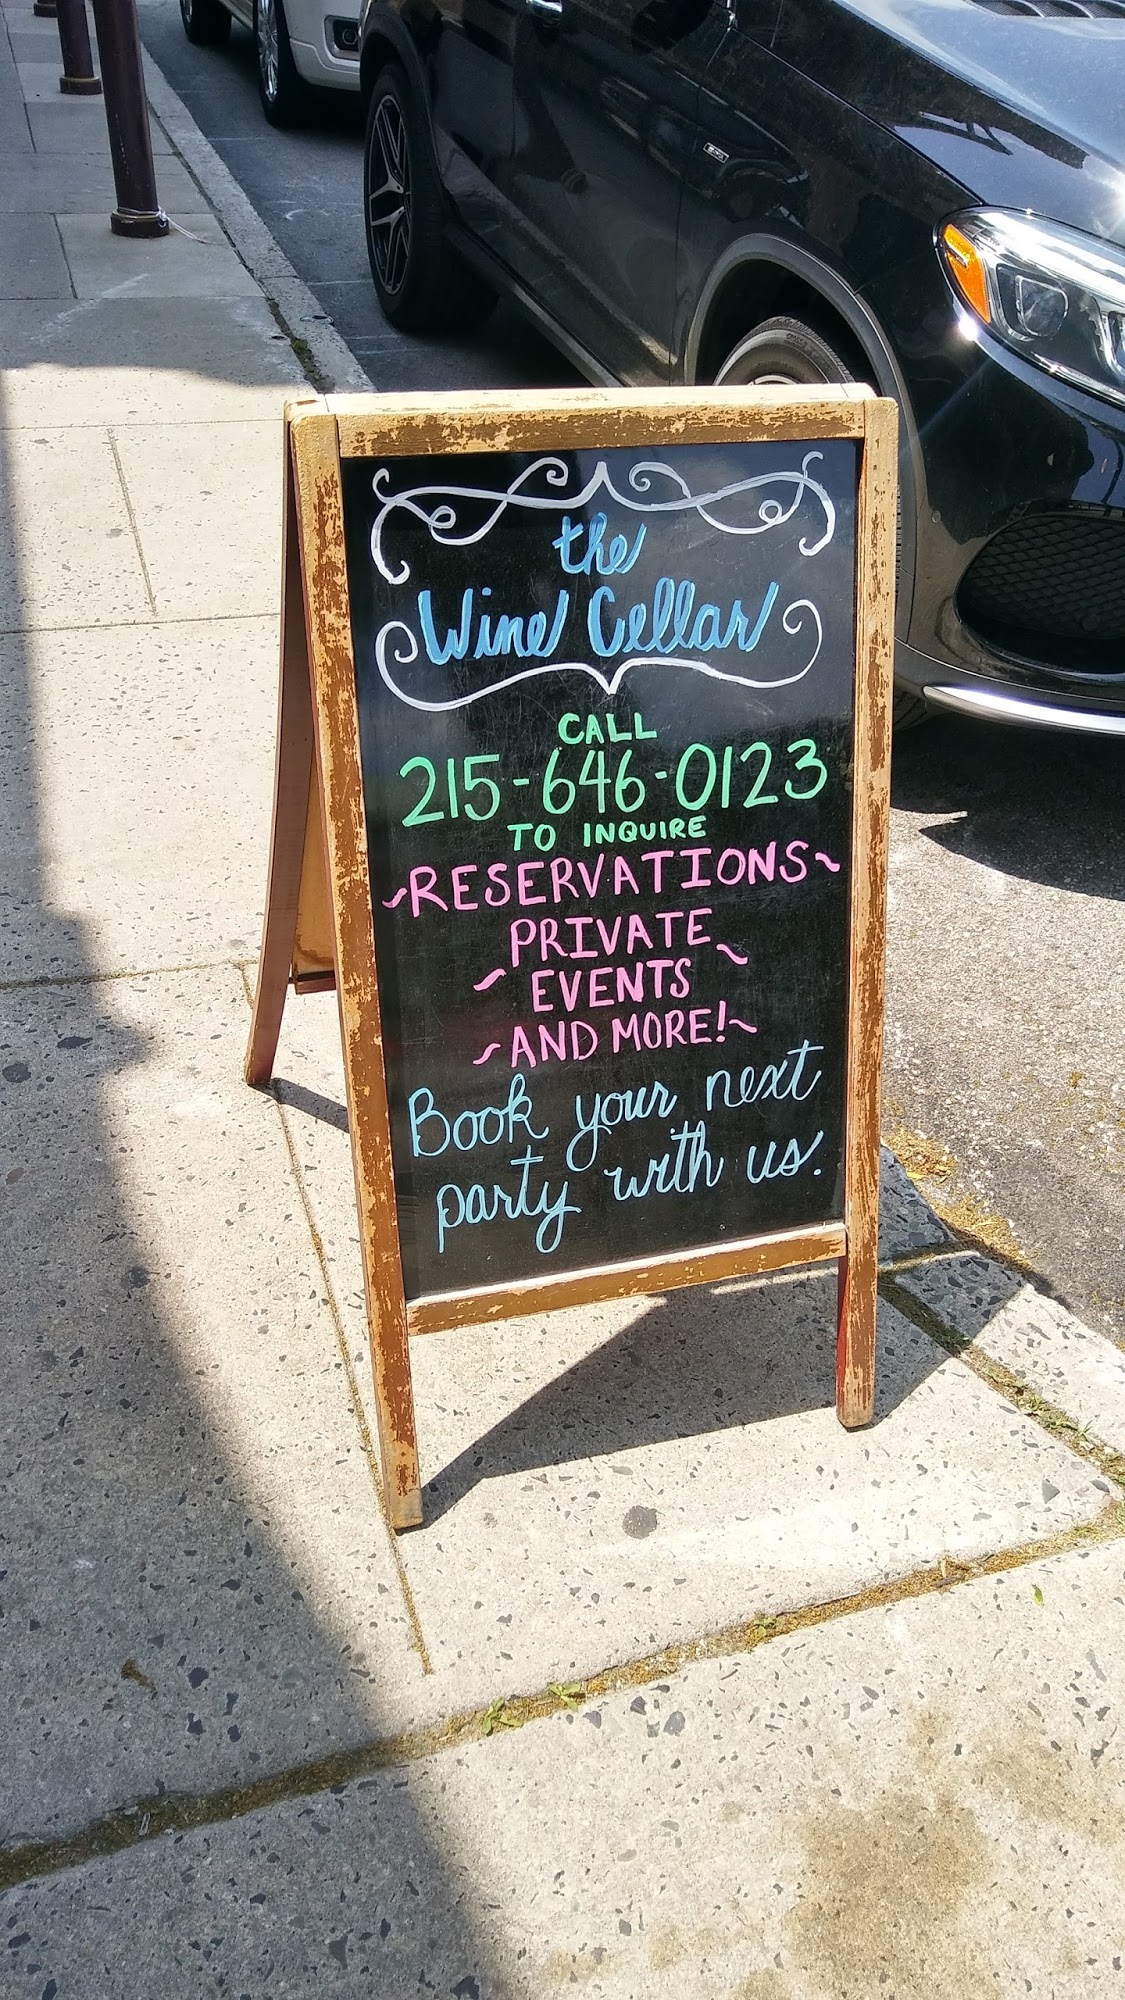 the
Wine Cellar
CALL
215-646-0123
TO INQUIRE
~RESERVATIONS~
PRIVATE
~EVENTS~
~AND MORE!~
Book your next
party with us.